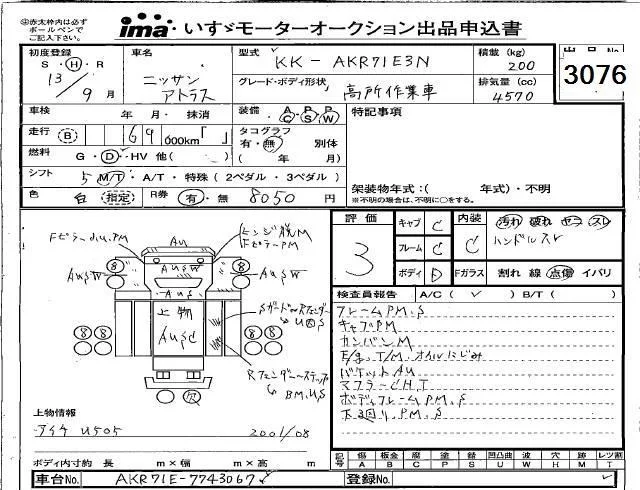 ㊟赤太枠内は必ず
ボールペンで
ご記入下さい。
ima いすゞモーターオークション出品申込書
出品No
3076
初度登録
S・H・R
13/9月
車名
ニッサン
アトラス
型式
KK-AKR71E3N
積載(kg)
200
グレード・ボディ形状
高所作業車
排気量(cc)
4570
車検 年・月・抹消
装備 A P P
C S W
特記事項
走行 B 69,000km「 」
タコグラフ
有・無 別体
( 年 月)
燃料 G・D・HV 他( )
シフト 5 M/T・A/T・特殊(2ペダル・3ペダル)
架装物年式:( 年式)・不明
※不明の場合は、不明に○をする。
色 白(指定) R券 有・無 8050円
評価
3
キャブ C
フレーム C
ボディ D
内装 C
汚れ 破れ コゲ スレ
ハンドルスレ
Fガラス 割れ 線 点傷 イバリ
検査員報告 A/C( ✓ ) B/T( )
フレームPM.S
キャブPM
カンバンM
E/g.T/M.オイルにじみ
バケットAU
マフラーCHT
ボディフレームPM.S
下回り.PM.S
FピラーdU.PM
AU
ヒンジ錆M
FピラーPM
AUSW
AUSW
AUSW
AUS
上物
AUSC
8
8
8 8
8 8
SガードRフェンダー
UBS
Rフェンダー~ステップ
BM.US
欠
上物情報
アイチ U505 2001/08
ボディ内寸約 長 m×幅 m×高 m
記号
傷 板金 腐 塗 錆 凹凸曲 波 穴 跡 レツ割
A B C P S U W H M T
車台No. AKR71E-7743067
登録No.